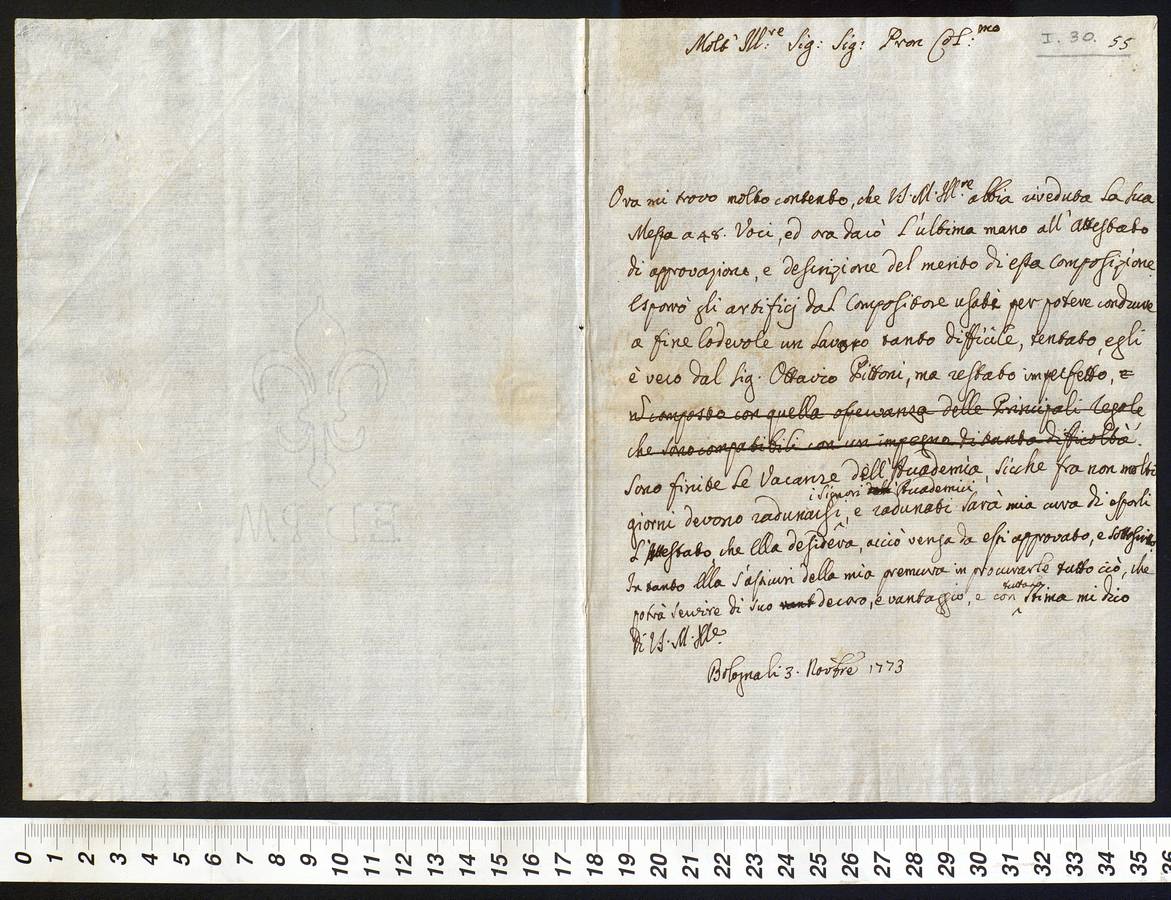 Molt' Ill:re Sig: Sig: Pron Col:mo
I. 30. 55
Ora mi trovo molto contento, che V. S. M. Ill.re abbia riveduta la sua
Messa a 48. Voci, ed ora darò l'ultima mano all'Attestato
di approvazione, e descrizione del merito di essa Composizione
Esporrò gli artificj dal Compositore usati per potere condurre
a fine lodevole un lavoro tanto difficile, tentato, egli
è vero dal Sig. Ottavio Pittoni, ma restato imperfetto,
composto con quella osservanza delle Principali regole
che sono compatibili con un impegno di tanta difficoltà.
Sono finite le Vacanze dell'Accademia, sicche fra non molti
i Signori Accademici
giorni devono radunarsi, e radunati sarà mia cura di esporli
l'Attestato che Ella desidera, acciò venga da essi approvato, e sottoscritto
In tanto Ella s'assicuri della mia premura in procurarle tutto ciò, che
tuttana
potrà servire di suo vant decoro, e vantaggio, e con stima mi dico
Di V. S. M. Ill.e
Bologna li 3. Novbre 1773
EDPM
0 1 2 3 4 5 6 7 8 9 10 11 12 13 14 15 16 17 18 19 20 21 22 23 24 25 26 27 28 29 30 31 32 33 34 35 36